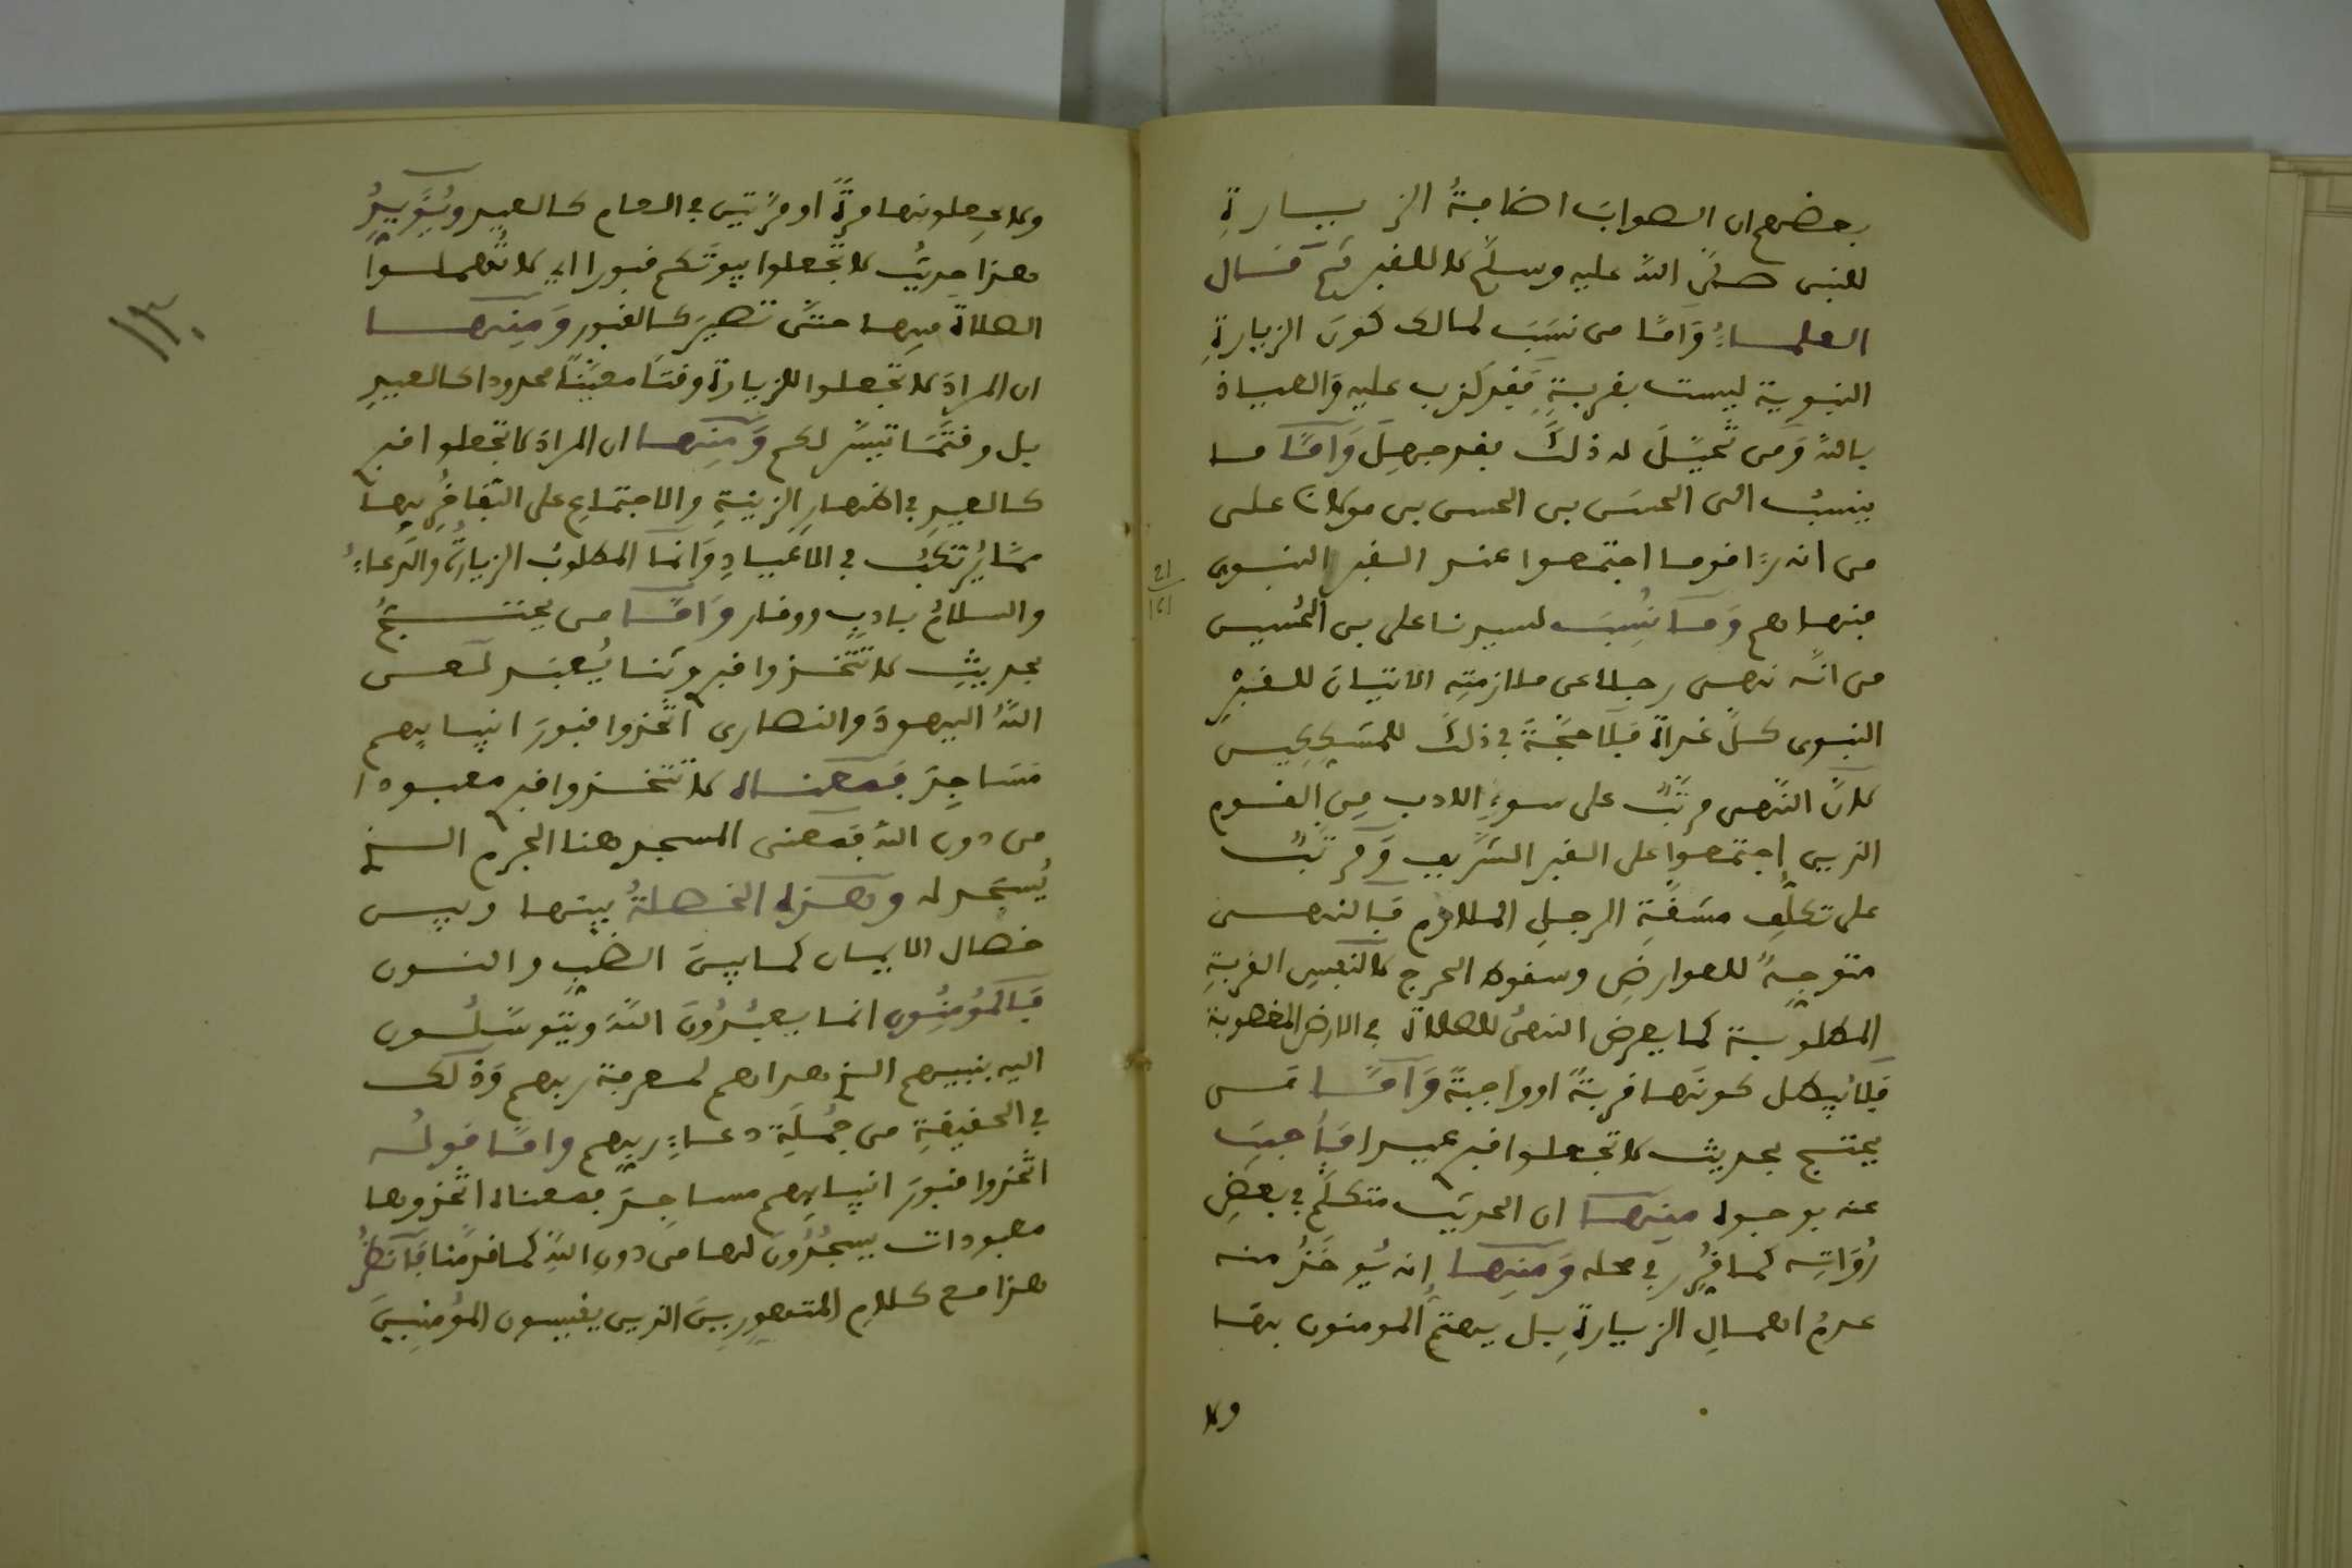 بعضهم ان الصواب اضافة الزيارة
للنبى صلى الله عليه وسلم لا للقبر ثم قال
العلماء وأما من نسب لمالك كون الزيارة
النبوية ليست بقربة فقد كذب عليه والعياذ
بالله ومن تخيل له ذلك فقد جهل وأما ما
ينسب الى الحسن بن الحسن بن مولانا على
من انه رءا قوما اجتمعوا عند القبر النبوى
فنهاهم وما نسب لسيدنا على بن الحسين
من انه نهى رجلا عن ملازمته الاتيان للقبر
النبوى كل غداة فلا حجة فى ذلك للمشككين
لان النهى مرتب على سوء الادب من القوم
الذين اجتمعوا على القبر الشريف ومرتب
على تكلف مشقة الرجل الملازم فالنهى
متوجه للعوارض وسقوط الحرج لا لنفس القربة
المطلوبة كما يعرض النهى للصلاة فى الارض المغصوبة
فلا يبطل كونها قربة او واجبة وأما من
يحتج بحديث لا تجعلوا قبرى عيدا فأجيب
عنه بوجوه منها ان الحديث متكلم فى بعض
رواته كما قرر فى محله ومنها انه يؤخذ منه
عدم اهمال الزيارة بل يهتم المومنون بها
ولا
ولا يجعلونها مرة او مرتين فى العام كالعيد ويؤيد
هذا حديث لا تجعلوا بيوتكم قبورا اى لا تهملوا
الصلاة فيها حتى تصير كالقبور ومنها
ان المراد لا تجعلوا للزيارة وقتا معينا محدودا كالعيد
بل وقتما تيسر لكم ومنها ان المراد لا تجعلوا قبرى
كالعيد فى اظهار الزينة والاجتماع على التفاخر فيها
مما يرتكب فى الاعياد وانما المطلوب الزيارة والدعاء
والسلام بادب ووقار وأما من يحتج
بحديث لا تتخذوا قبرى وثنا يعبد لعن
الله اليهود والنصارى اتخذوا قبور انبيايهم
مساجد فمعناه لا تتخذوا قبرى معبودا
من دون الله فمعنى المسجد هنا الجرم الذى
يسجد له وهذه الخصلة بينها وبين
خصال الايمان كما بين الضب والنون
فالمؤمنون انما يعبدون الله ويتوسلون
اليه بنبيهم الذى هداهم لمعرفة ربهم وذلك
فى الحقيقة من جملة دعاء ربهم واما قوله
اتخذوا قبور انبيايهم مساجد فمعناه اتخذوها
معبودات يسجدون لها من دون الله كما قدمنا فانظر
هذا مع كلام المتهورين الذين يقيسون المؤمنين